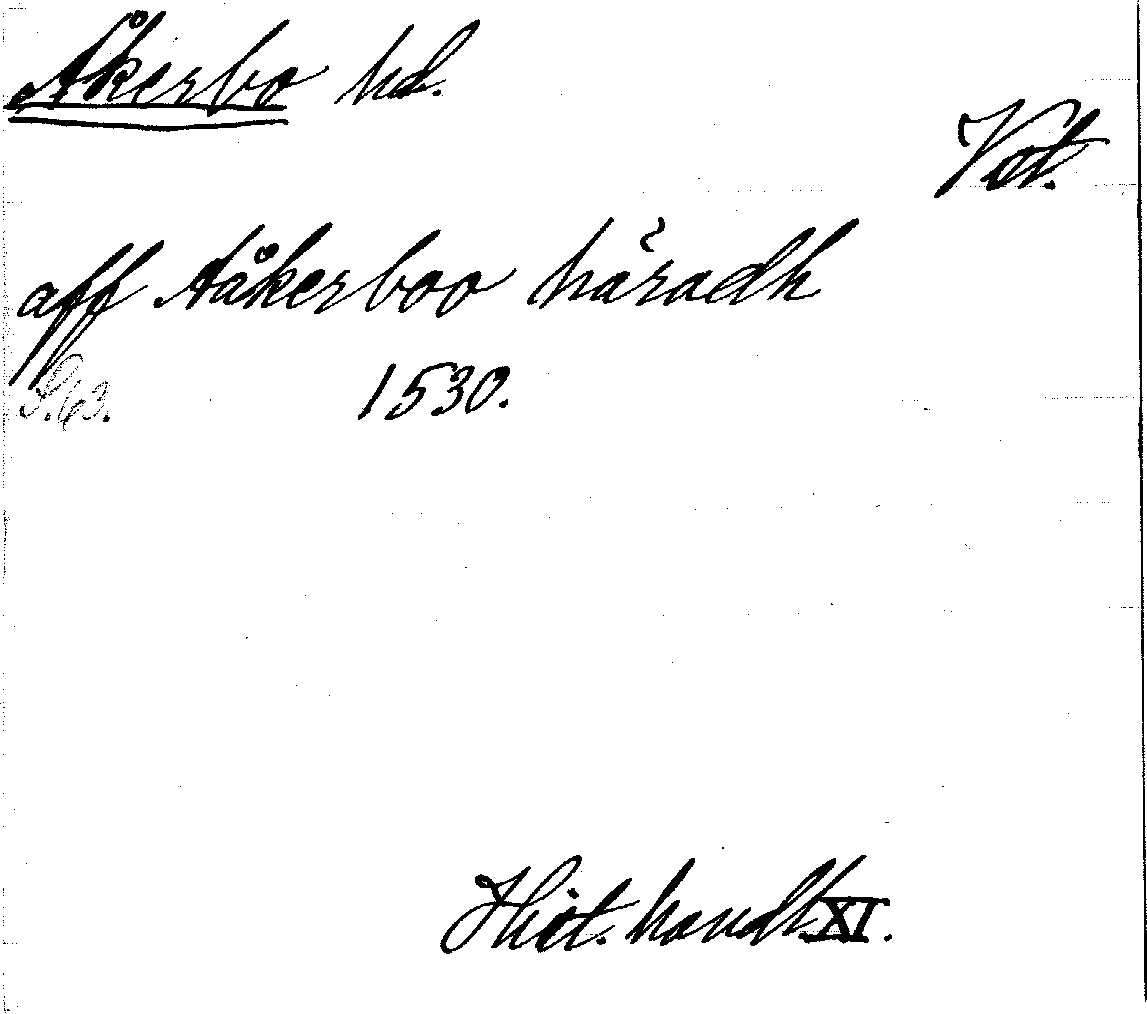 Åkerbo hd.
Vst.
aff Aåkerboo häradh
S. 63. 1530.
Hist. handl. XI.